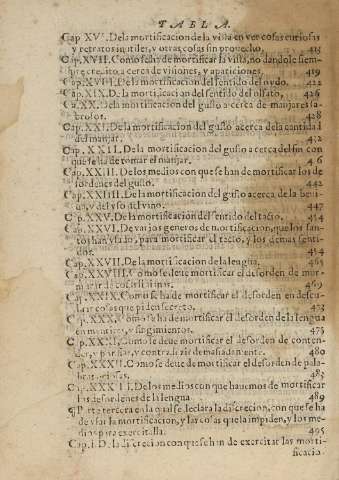 TABLA.
Cap. XVI. De la mortificacion de la vista en ver cosas curiosas
y retratos inutiles, y otras cosas sin prouecho. 415
Cap. XVII. Como se ha de mortificar la vista, no dandole siem
pre credito a cerca de visiones, y apariciones. 419
Cap. XVIII. De la mortificacion del sentido del oydo. 422
Cap. XIX. De la mortificacion del sentido del olfato. 426
Ca. XX. De la mortificacion del gusto a cerca de manjares sa-
brosos. 428
Cap. XXI. De la mortificacion del gusto acerca de la cantidad
del manjar. 432
Cap. XXII. De la mortificacion del gusto a cerca del fin con
que se ha de tomar el manjar. 436
Cap. XXIII. De los medios con que se han de mortificar los de
sordenes del gusto. 442
Cap. XXIIII. De la mortificacion del gusto acerca de la beui-
da, y del vso del vino. 447
Cap. XXV. De la mortificacion del sentido del tacto. 454
Cap. XXVI. De varios generos de mortificacion, que los san-
tos han vsado, para mortificar el tacto, y los demas senti-
dos. 454
Cap. XXVII. De la mortificacion de la lengua. 465
Cap. XXVIII. Como se ha de mortificar el desorden de mur-
murar de cosas liuianas. 469
Cap. XXIX. Como se ha de mortificar el desorden en descu-
brir cosas que piden secreto. 473
Cap. XXX. Como se ha de mortificar el desorden de la lengua
en mentiras, y fingimientos. 475
Cap. XXXI. Como se deue mortificar el desorden de conten-
der, y porfiar, y contradezir demasiadamente. 480
Cap. XXXII. Como se deue de mortificar el desorden de pala-
bras ociosas. 485
Cap. XXXIII. De los medios con que hauemos de mortificar
los desordenes de la lengua. 489
¶ Parte tercera en la qual se declara la discrecion, con que se ha
de vsar la mortificacion, y las cosas que la impiden, y los me-
dios para exercitalla. 495
Cap. I. De la discrecion con que se han de exercitar las morti-
ficacio-